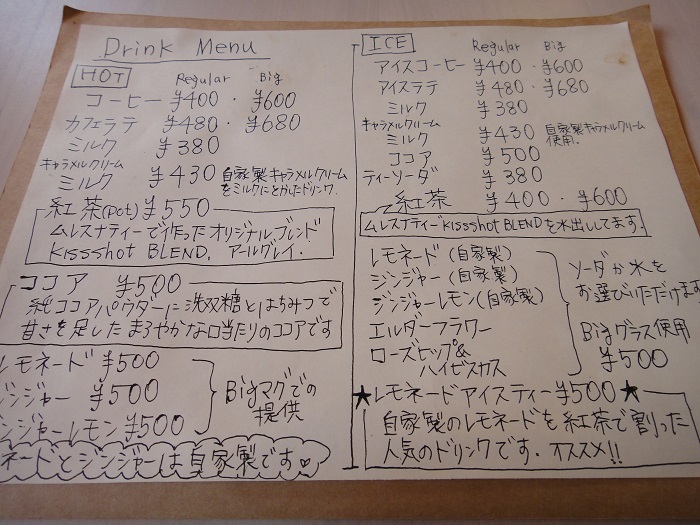 Drink Menu
HOT Regular Big
コーヒー ¥400・¥600
カフェラテ ¥480・¥680
ミルク ¥380
キャラメルクリーム
ミルク ¥430 自家製キャラメルクリーム
をミルクにとかしたドリンク.
紅茶(Pot) ¥550
ムレスナティーで作ったオリジナルブレンド
Kissshot BLEND, アールグレイ.
ココア ¥500
純ココアパウダーに洗双糖とはちみつで
甘さを足したまろやかな口当たりのココアです
レモネード ¥500
ジンジャー ¥500
ジンジャーレモン ¥500
Bigマグでの
提供
ネードとジンジャーは自家製です♡
ICE Regular Big
アイスコーヒー ¥400・¥600
アイスラテ ¥480・¥680
ミルク ¥380
キャラメルクリーム
ミルク ¥430 自家製キャラメルクリーム
使用.
ココア ¥500
ティーソーダ ¥380
紅茶 ¥400・¥600
ムレスナティーKissshot BLENDを水出ししてます
レモネード (自家製)
ジンジャー (自家製)
ジンジャーレモン (自家製)
エルダーフラワー
ローズヒップ&
ハイビスカス
ソーダか水を
お選びいただけます
Bigグラス使用
¥500
★レモネードアイスティー ¥500★
自家製のレモネードを紅茶で割った
人気のドリンクです. オススメ!!